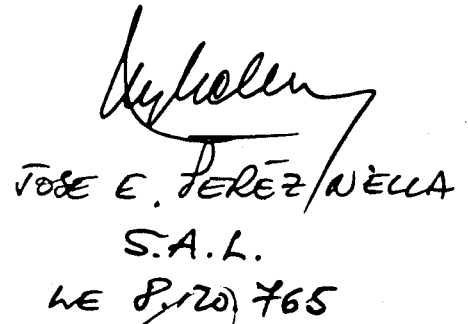 JOSE E. PEREZ NELLA
S.A.L.
LE 8,120,765